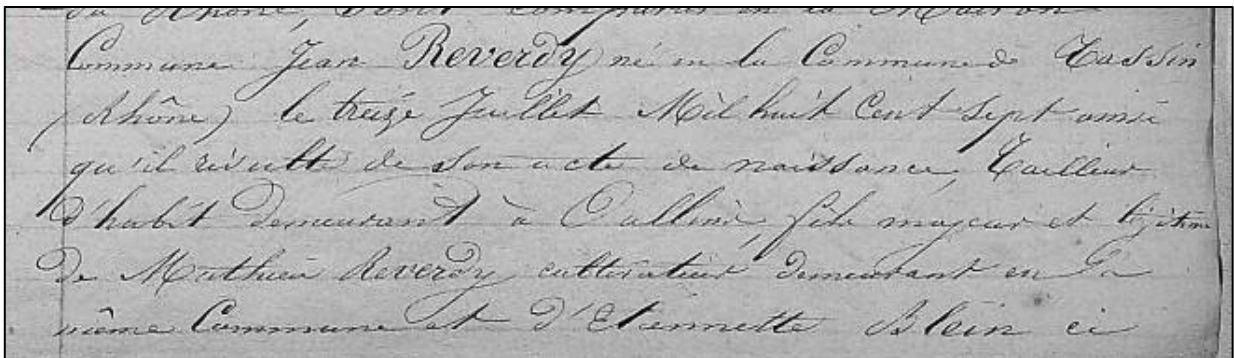 du Rhône, Sont comparus en la Maison
Commune Jean Reverdy né en la Commune de Tassin
(Rhône) le treize Juillet Mil huit Cent Sept ainsi
qu'il résulte de Son acte de naissance, Tailleur
d'habit demeurant à Oullins, fils majeur et légitime
De Mathieu Reverdy, cultivateur demeurant en la
même Commune et d'Etiennette Blein ci